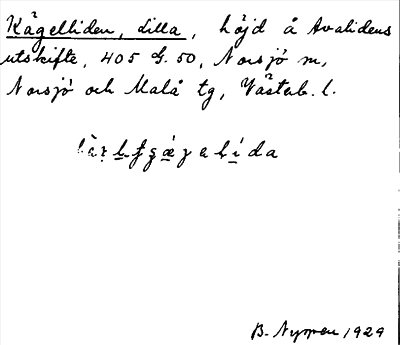 Kågelliden, dilla, höjd å Avalidens
utskifte, 405 G. 50, Norsjö m,
Norsjö och Malå tg, Västerb. l.
B. Nyman 1929